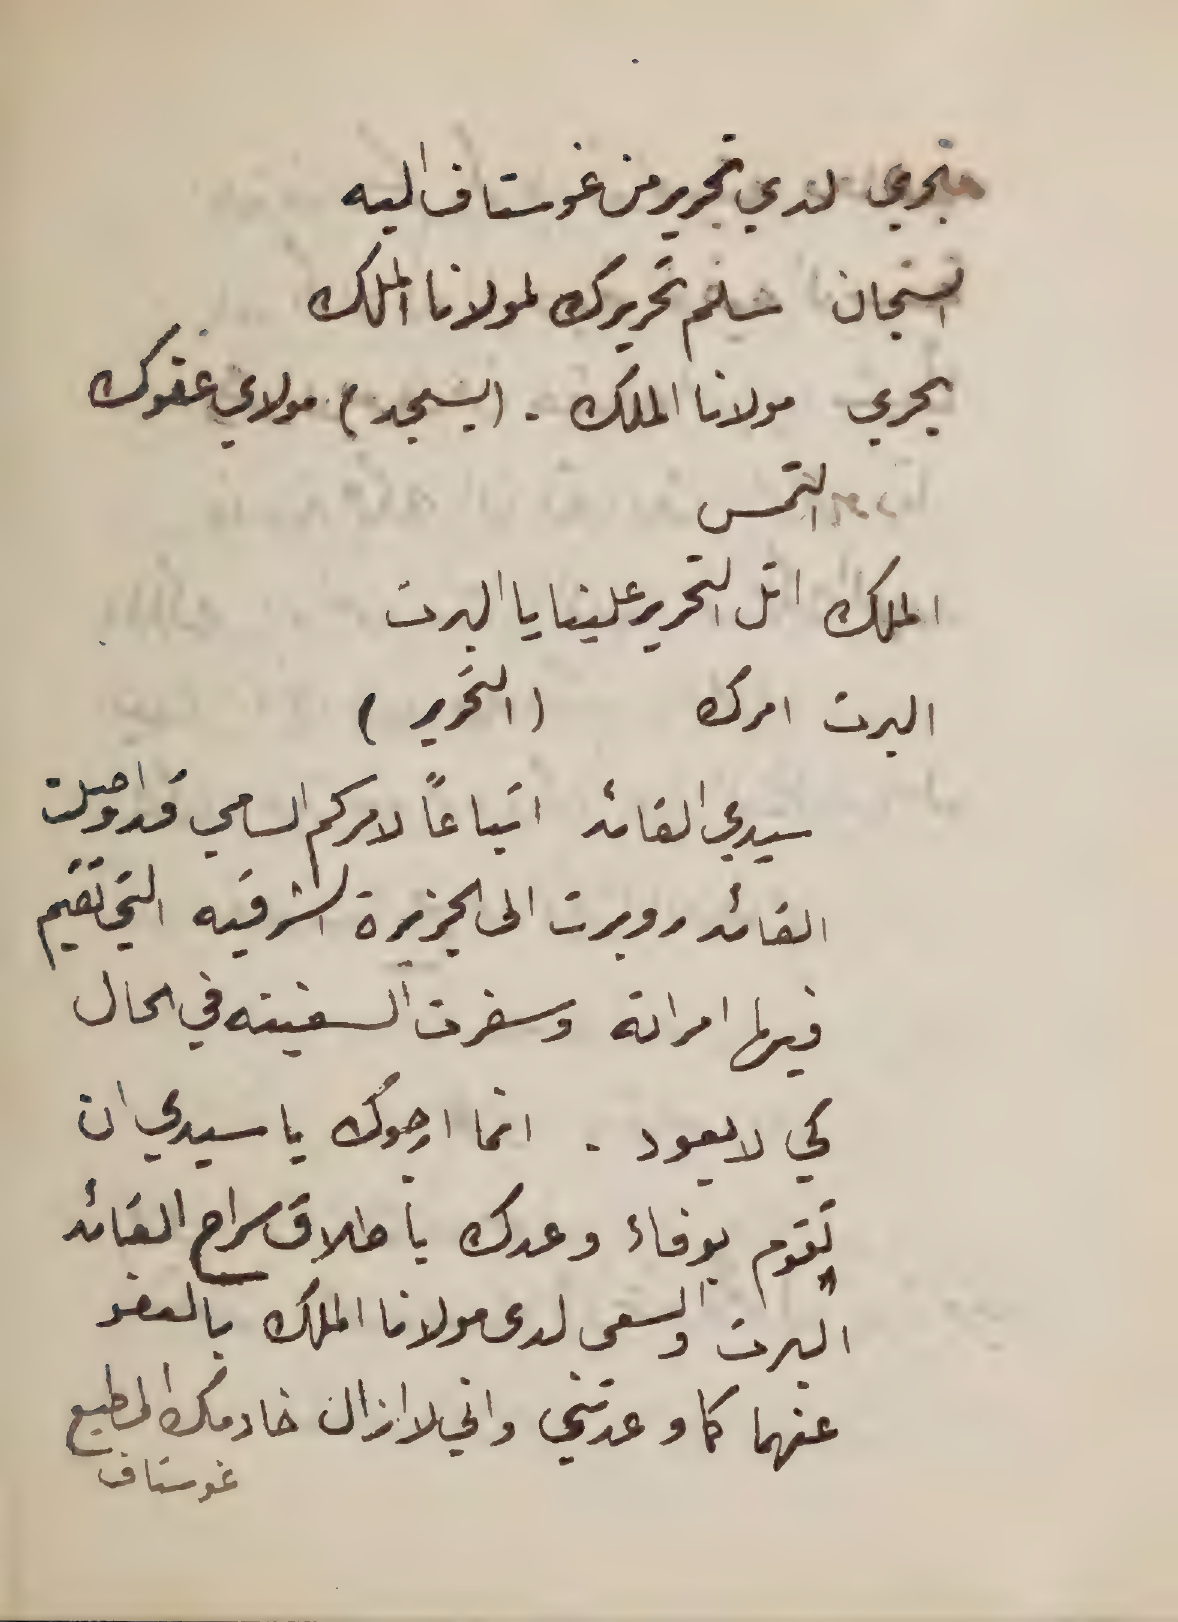 بجري لدي تحرير من غوستاف اليه
السجان سلم تحريرك لمولانا الملك
بجري مولانا الملك . (يسجد) مولاي عفوك
التمس
الملك اتل التحرير علينا يا البرت
البرت امرك (التحرير)
سيدي القائد اتباعاً لامركم السامي قد اوصلت
القائد روبرت الى الجزيرة الشرقيه التي تقيم
فيها امراته وسفرت السفينه في الحال
كي لا يعود . انما ارجوك يا سيدي ان
تقوم بوفاء وعدك باطلاق سراح القائد
البرت والسعى لدى مولانا الملك بالعفو
عنهما كما وعدتني واني لا ازال خادمك المطيع
غوستاف